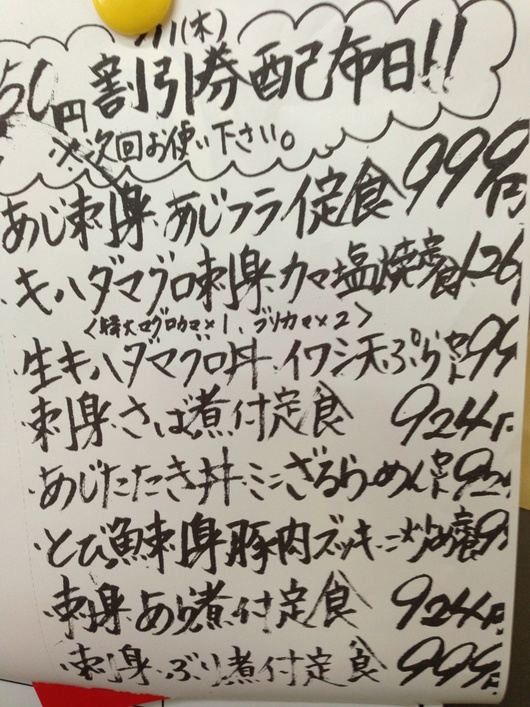 7/11(木)
50円割引券配布日!!
※次回お使い下さい。
あじ刺身 あじフライ定食 999円
キハダマグロ刺身 カマ塩焼定食 1,26
<特大マグロカマ×1、ブリカマ×2>
生キハダマグロ丼 イワシ天ぷらセット 99
刺身 さば煮付定食 924円
あじたたき丼 ミニざるらーめんセット 92
とび魚刺身 豚肉ズッキーニ炒め定食 9
刺身 あら煮付定食 924円
刺身 ぶり煮付定食 999円